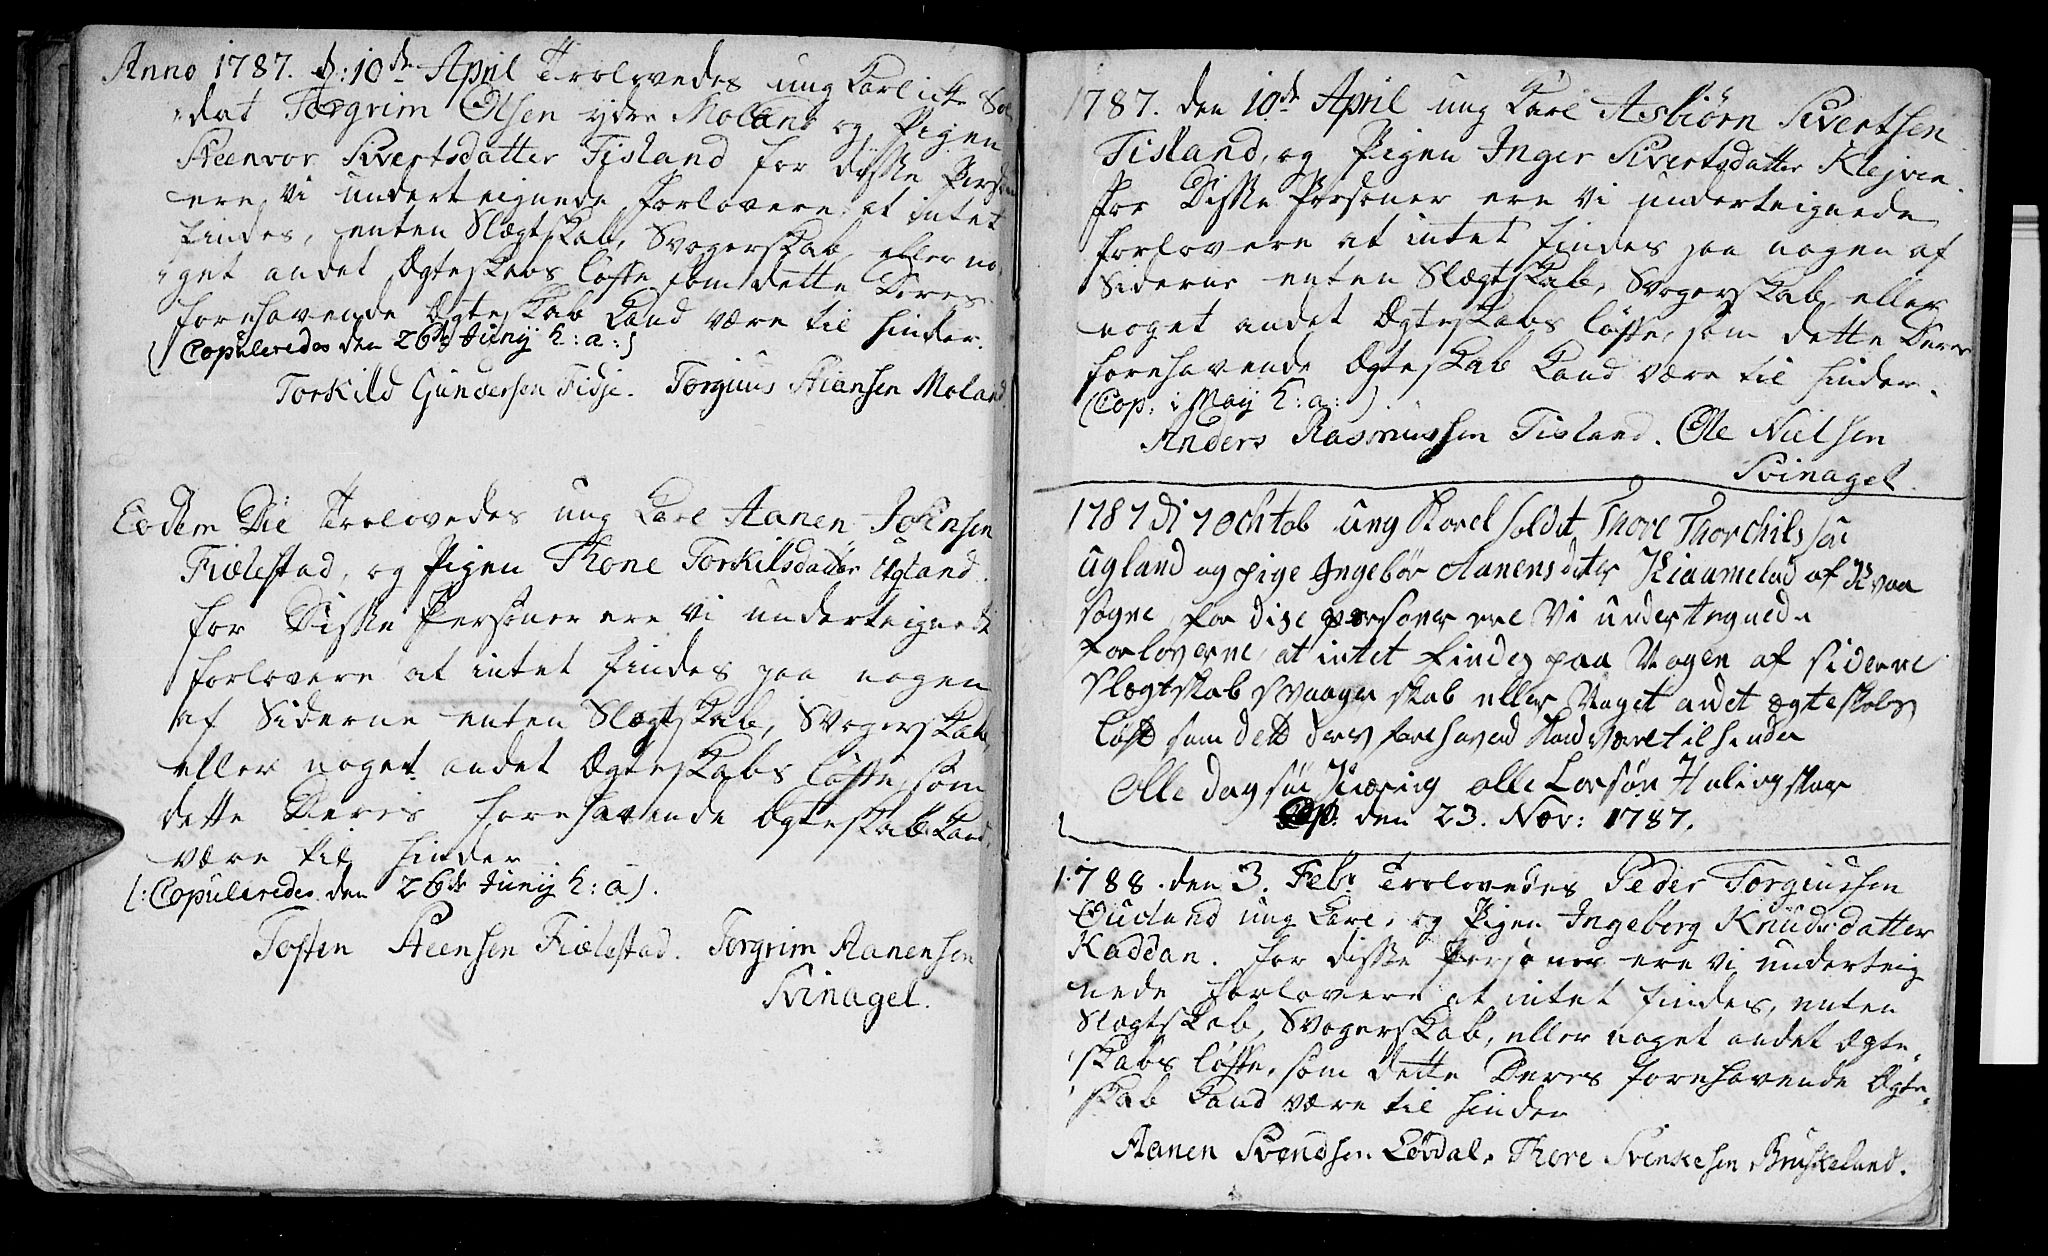 Anno 1787. d: 10de April Trolovedes ung Karl
dat Torgrim Olsen ydre Moland og Pigen
Steenvor Sivertsdatter Tisland for disse Perso
ere vi underteignede Forlovere, at intet
findes, enten Slægtskab, Svogerskab, eller no
get andet Ægteskabs løfte, som dette Deres
forehavende Ægteskab Kand være til hinder.
(Copuleredes den 26de Junij h: a:)
Torkild Gundersen Fidje. Torgius Stiansen Moland
Eodem Die Trolovedes ung Karl Aanen Johnsen
Fiælestad, og Pigen Thone Torkilsdatter Ugland.
for Disse Personer ere vi underteignede
forlovere at intet findes paa nogen
af Siderne enten Slægtskab, Svogerskab
eller noget andet Ægteskabs løfte, som
dette Deres forehavende Ægteskab Kand
være til hinder
(: Copuleredes den 26de Junij h: a).
Tosten Steensen Fiælestad. Torgrim Aanensen
Svinagel.
1787. den 10de April ung Karl Asbiørn Sivertsen
Tisland, og Pigen Inger Sivertsdatter Klejven.
for Disse Personer ere vi underteignede
forlovere at intet findes paa nogen af
Siderne enten Slægtskab, Svogerskab eller
noget andet Ægteskabs løfte, som dette Deres
forehavende Ægteskab Kand være til hinder.
(Cop: i Maij h: a:).
Anders Rasmussen Tisland. Ole Nielsen
Svinagel.
1787 d 7 Ochtob ung Karel soldat Thore Thorchilssøn
Ugland og pige Ingebør Aanensdater af Evaa
sogne for dise personer ere Vi undertegnede
forloverne, at intet findes paa Nogen af siderne
slegtskab svaager skab eller Naget andet ægteskabs
løft som dett ders forehavend Kand være til hinder
Olle dagsøn Kiæring olle Larsøn
Cop. den 23. Nov: 1787.
1788. den 3. Febr Trolovedes Peder Torgiussen
Ougland ung Karl, og Pigen Ingeborg Knudsdatter
Kaddan. for disse Personer ere vi underteig
nede forlovere at intet findes, enten
Slægtskab, Svogerskab, eller noget andet Ægte-
skabs løfte, som dette Deres forehavende Ægte-
skab Kand være til hinder
Aanen Svendsen Løvdal. Thore Svenkesen Bruskeland.